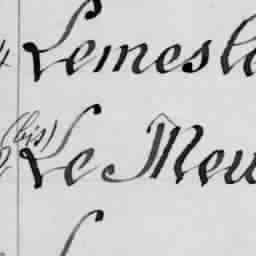 Lemesl
(bis)
Le Meu